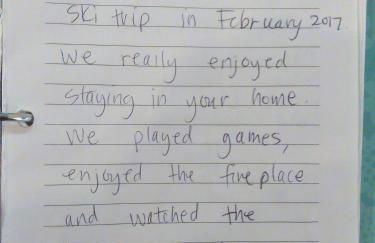 Ski trip in February 2017.
We really enjoyed
staying in your home.
We played games,
enjoyed the fireplace
and watched the